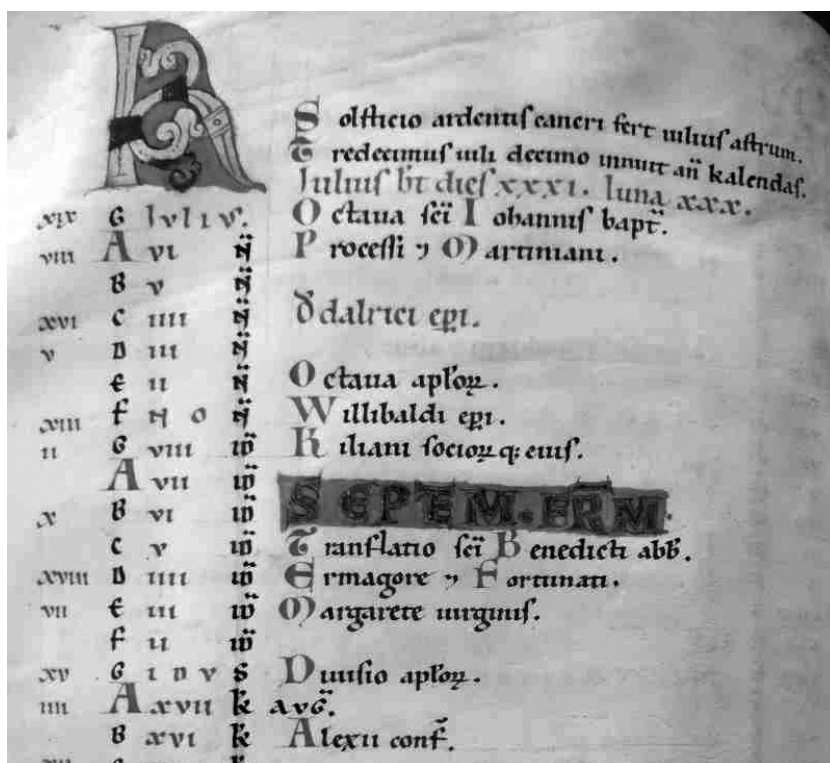 Solsticio ardentis cancri fert iulius astrum.
Tredecimus iuli decimo innuit an̄ kalendas.
Iulius ht̄ dies xxxi. luna xxx.
xix G Iulius. Octaua sc̄i Iohannis bapt̄.
viii A vi N̄ Processi ⁊ Martiniani.
B v N̄
xvi C iiii N̄ Vdalrici ep̄i.
v D iii N̄
E ii N̄ Octaua apl̄oꝝ.
xiii F NO N̄ Willibaldi ep̄i.
ii G viii id̄ Kiliani socioꝝ q; eius.
A vii id̄
x B vi id̄ SEPTEM. FR̄M.
C v id̄ Translatio sc̄i Benedicti abb̄.
xviii D iiii id̄ Ermagore ⁊ Fortunati.
vii E iii id̄ Margarete uirginis.
F ii id̄
xv G idus Diuisio apl̄oꝝ.
iiii A xvii k̄ AVḠ.
B xvi k̄ Alexii conf̄.